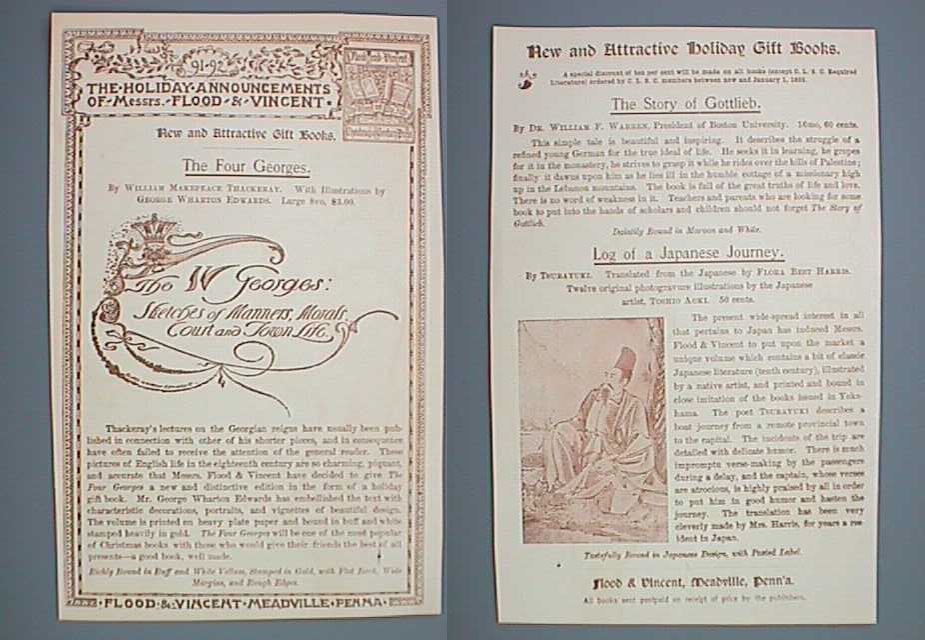 91-92
THE·HOLIDAY·ANNOUNCEMENTS
OF·Messrs.·FLOOD·&·VINCENT·
Flood and Vincent
New and Attractive Gift Books.
The Four Georges.
By William Makepeace Thackeray. With Illustrations by
George Wharton Edwards. Large 8vo, $3.00.
The IV Georges:
Sketches of Manners, Morals,
Court and Town Life.
Thackeray's lectures on the Georgian reigns have usually been pub-
lished in connection with other of his shorter pieces, and in consequence
have often failed to receive the attention of the general reader. These
pictures of English life in the eighteenth century are so charming, piquant,
and accurate that Messrs. Flood & Vincent have decided to give The
Four Georges a new and distinctive edition in the form of a holiday
gift book. Mr. George Wharton Edwards has embellished the text with
characteristic decorations, portraits, and vignettes of beautiful design.
The volume is printed on heavy plate paper and bound in buff and white
stamped heavily in gold. The Four Georges will be one of the most popular
of Christmas books with those who would give their friends the best of all
presents—a good book, well made.
Richly Bound in Buff and White Vellum, Stamped in Gold, with Flat Back, Wide
Margins, and Rough Edges.
·FLOOD·&·VINCENT·MEADVILLE·PENNA·
New and Attractive Holiday Gift Books.
A special discount of ten per cent will be made on all books (except C. L. S. C. Required
Literature) ordered by C. L. S. C. members between now and January 1,
The Story of Gottlieb.
By Dr. William F. Warren, President of Boston University. 16mo, 60 cents.
This simple tale is beautiful and inspiring. It describes the struggle of a
refined young German for the true ideal of life. He seeks it in learning, he gropes
for it in the monastery, he strives to grasp it while he rides over the hills of Palestine;
finally it dawns upon him as he lies ill in the humble cottage of a missionary high
up in the Lebanon mountains. The book is full of the great truths of life and love.
There is no word of weakness in it. Teachers and parents who are looking for some
book to put into the hands of scholars and children should not forget The Story of
Gottlieb.
Daintily Bound in Maroon and White.
Log of a Japanese Journey.
By Tsurayuki. Translated from the Japanese by Flora Best Harris.
Twelve original photogravure illustrations by the Japanese
artist, Toshio Aoki. 50 cents.
The present wide-spread interest in all
that pertains to Japan has induced Messrs.
Flood & Vincent to put upon the market a
unique volume which contains a bit of classic
Japanese literature (tenth century), illustrated
by a native artist, and printed and bound in
close imitation of the books issued in Yoko-
hama. The poet Tsurayuki describes a
boat journey from a remote provincial town
to the capital. The incidents of the trip are
detailed with delicate humor. There is much
impromptu verse-making by the passengers
during a delay, and the captain, whose verses
are atrocious, is highly praised by all in order
to put him in good humor and hasten the
journey. The translation has been very
cleverly made by Mrs. Harris, for years a res-
ident in Japan.
Tastefully Bound in Japanese Design, with Pasted Label.
Flood & Vincent, Meadville, Penn'a.
All books sent postpaid on receipt of price by the publishers.